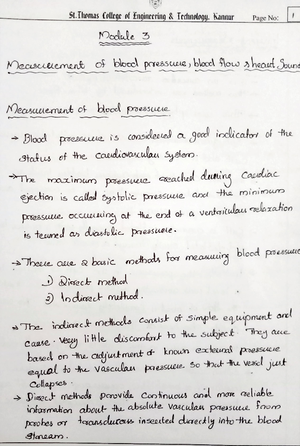 St. Thomas College of Engineering & Technology, Kannur
Page No: 1
Module 3
Measurement of blood pressure, blood flow & heart Soun
Measurement of blood pressure
→ Blood pressure is considered a good indicator of the
status of the cardiovascular system.
→ The maximum pressure reached during cardiac
ejection is called systolic pressure and the minimum
pressure occurring at the end of a ventricular relaxation
is termed as diastolic pressure.
→ There are 2 basic methods for measuring blood pressure
1) Direct method
2) Indirect method.
→ The indirect methods consist of simple equipment and
cause very little discomfort to the subject. They are
based on the adjustment of known external pressure
equal to the vascular pressure so that the vessel just
collapses.
→ Direct methods provide continuous and more reliable
information about the absolute vascular pressure from
probes or transducers inserted directly into the blood
stream.